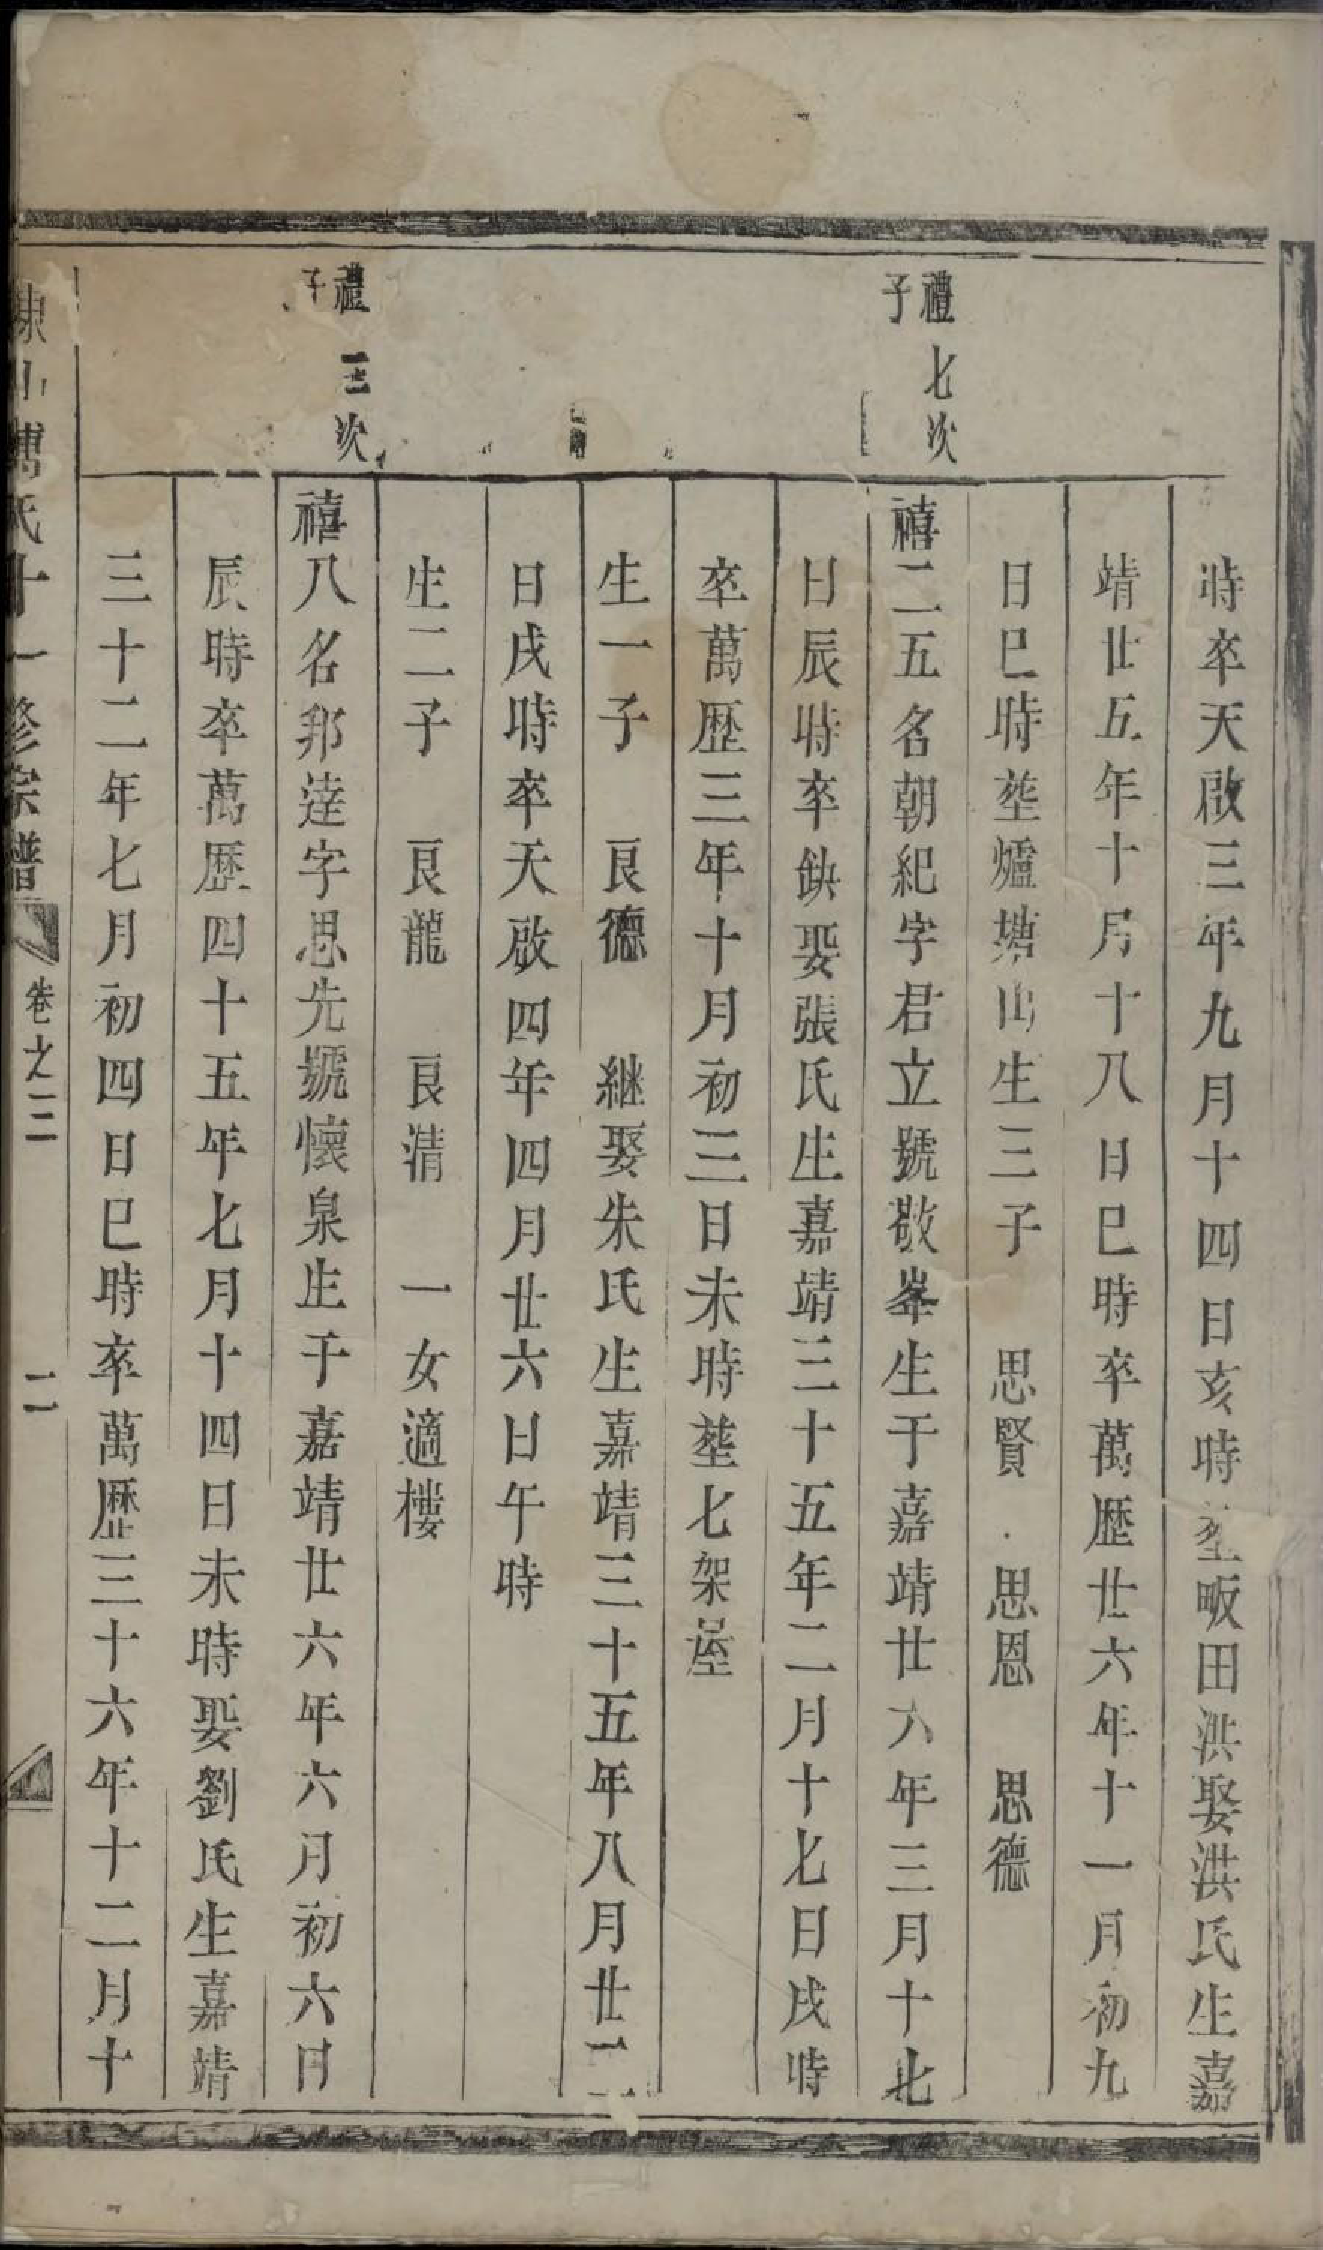 時卒天啟三年九月十四日亥時塟畈田洪娶洪氏生嘉
靖廿五年十月十八日巳時卒萬歷廿六年十一月初九
日巳時塟爐塘山生三子 思賢 思恩 思德
禮七次
子
禧二五名朝紀字君立號敬峯生于嘉靖廿六年三月十七
日辰時卒缺娶張氏生嘉靖三十五年二月十七日戌時
卒萬歷三年十月初三日未時塟七架屋
生一子 良德 継娶朱氏生嘉靖三十五年八月廿二
日戌時卒天啟四年四月廿六日午時
生二子 良龍 良清 一女適樓
禮三次
子
禧八名邦達字思先號懷泉生于嘉靖廿六年六月初六日
辰時卒萬歷四十五年七月十四日未時娶劉氏生嘉靖
三十二年七月初四日巳時卒萬歷三十六年十二月十
傅氏十一修宗譜 卷之三 二